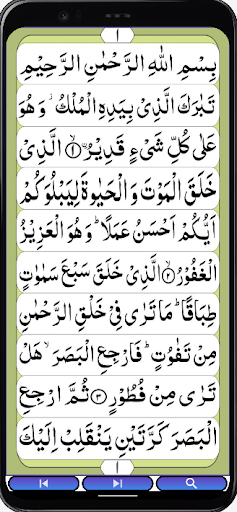 ا
بِسْمِ اللّٰهِ الرَّحْمٰنِ الرَّحِيْمِ
تَبٰرَكَ الَّذِيْ بِيَدِهِ الْمُلْكُ ؗ وَهُوَ
عَلٰى كُلِّ شَيْءٍ قَدِيْرُ ۙ﴿۱﴾ اۨلَّذِيْ
خَلَقَ الْمَوْتَ وَ الْحَيٰوةَ لِيَبْلُوَكُمْ
اَيُّكُمْ اَحْسَنُ عَمَلًا ؕ وَ هُوَ الْعَزِيْزُ
الْغَفُوْرُ ۙ﴿۲﴾ الَّذِيْ خَلَقَ سَبْعَ سَمٰوٰتٍ
طِبَاقًا ؕ مَا تَرٰى فِيْ خَلْقِ الرَّحْمٰنِ
مِنْ تَفٰوُتٍ ؕ فَارْجِعِ الْبَصَرَ ۙ هَلْ
تَرٰى مِنْ فُطُوْرٍ ﴿۳﴾ ثُمَّ ارْجِعِ
الْبَصَرَ كَرَّتَيْنِ يَنْقَلِبْ اِلَيْكَ
ا